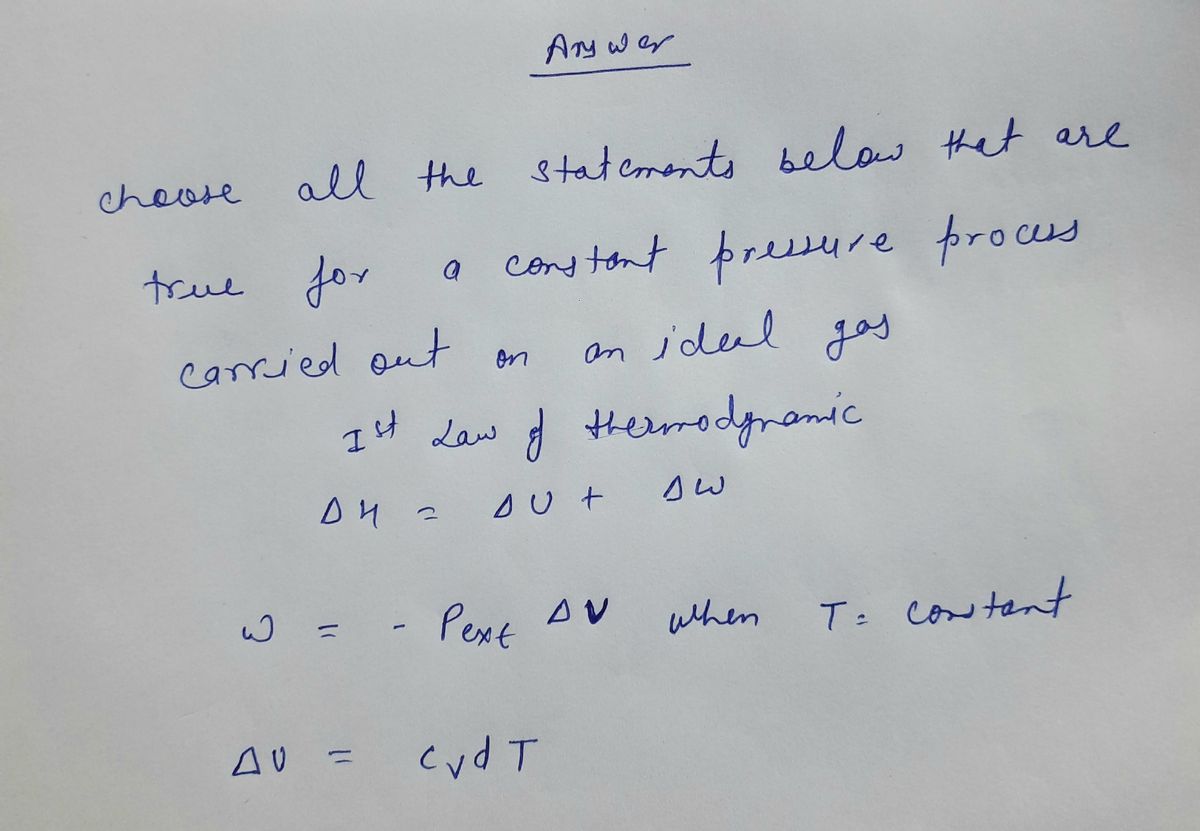 Answer
choose all the statements below that are
true for a constant pressure process
carried out on an ideal gas
Ist Law of thermodynamic
ΔH = ΔU + ΔW
W = - Pext ΔV when T = constant
ΔU = CvdT